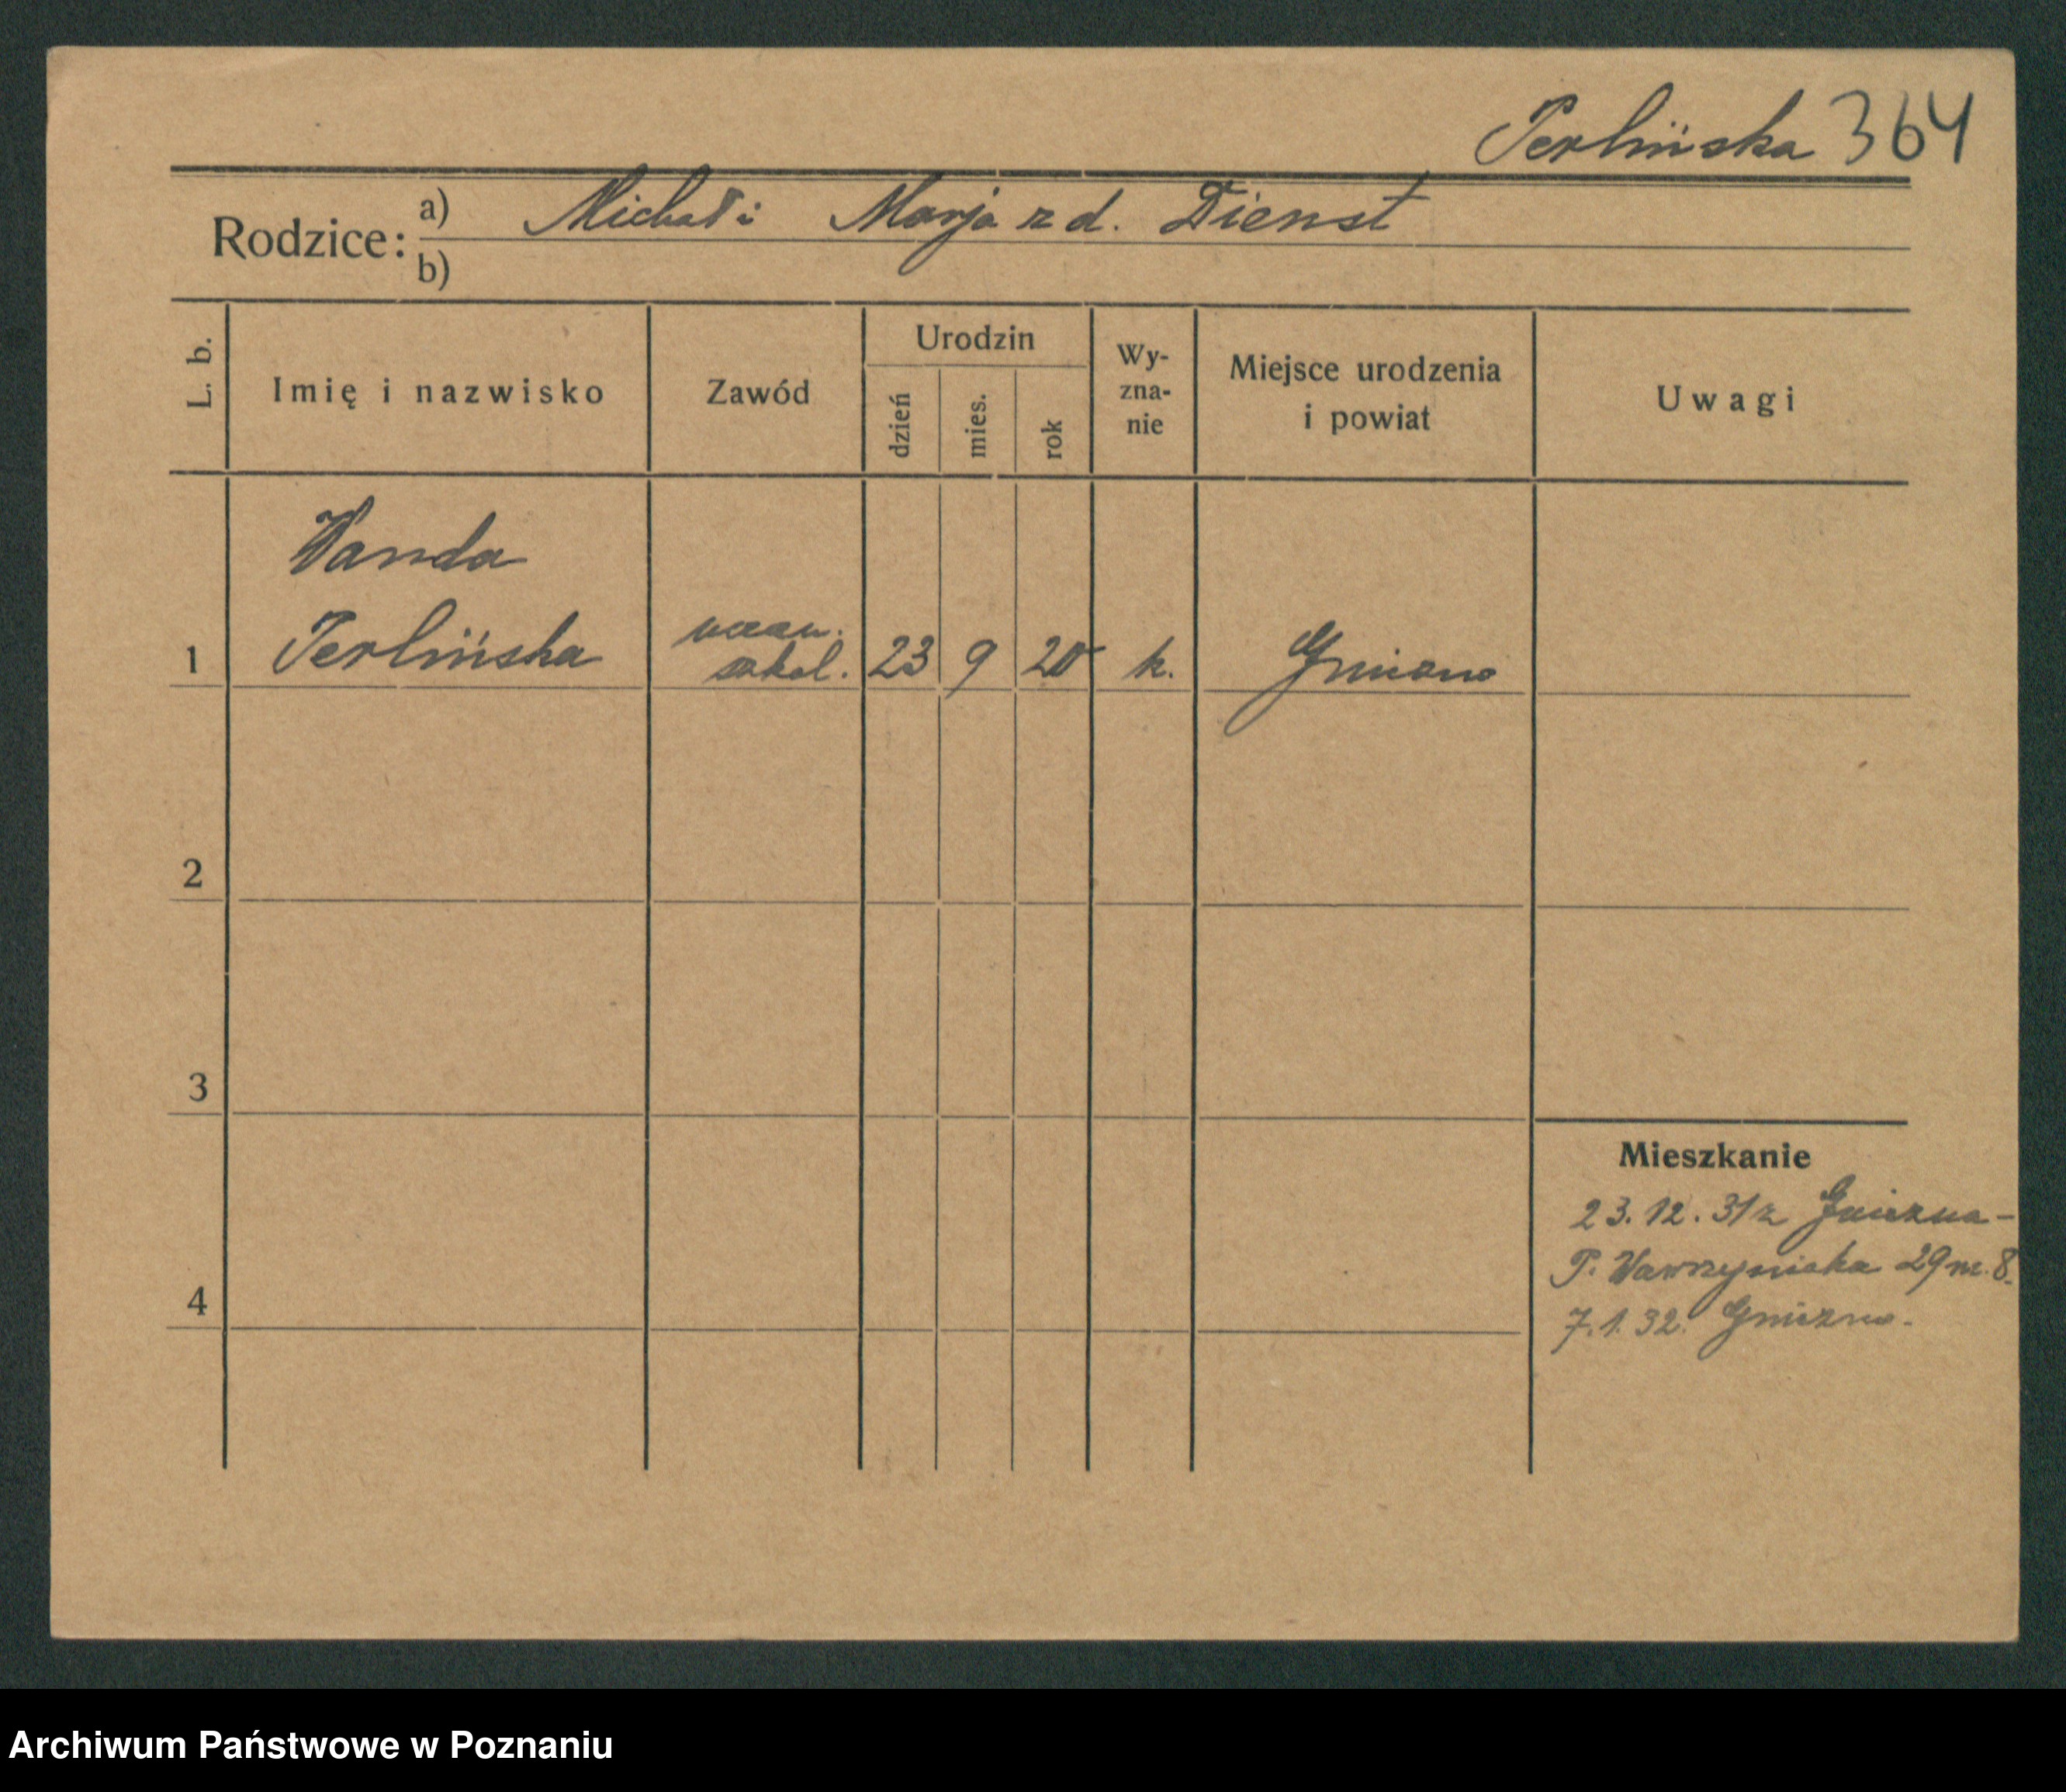 Perlińska 364
Rodzice: a) Michał i Marja z d. Dienst
b)
L. b. Imię i nazwisko Zawód Urodzin dzień mies. rok Wy-zna-nie Miejsce urodzenia i powiat Uwagi
Wanda
1 Perlińska uczen. szkol. 23 9 20 k. Gniezno
2
3
Mieszkanie
23.12.31 z Gniezna -
P. Wawrzyniaka 29 m. 8.
4
7.1.32. Gniezno.
Archiwum Państwowe w Poznaniu